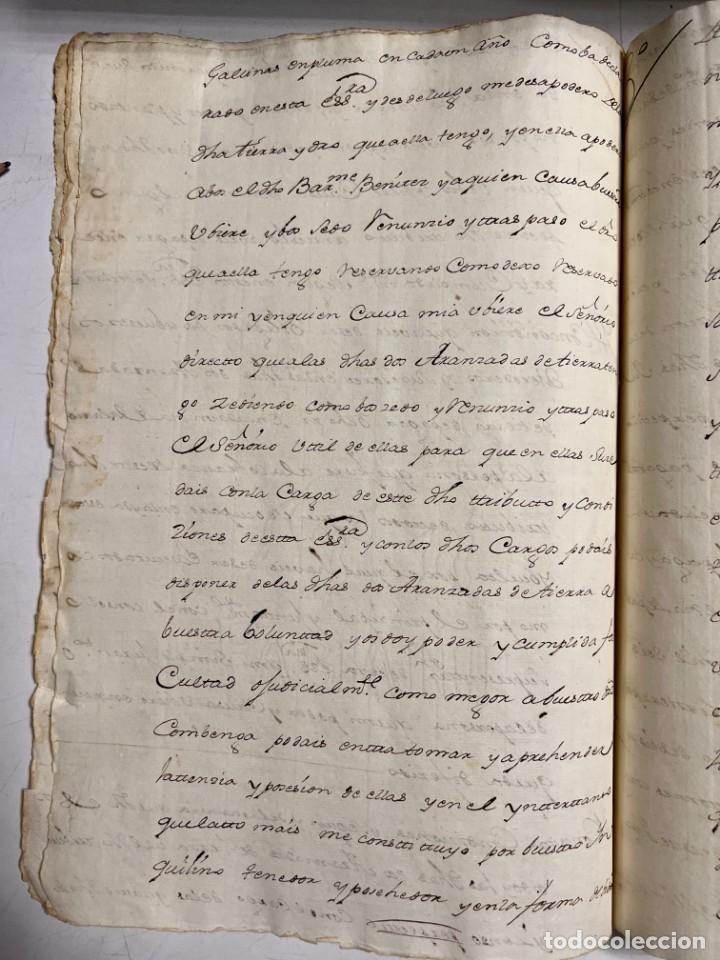 Gallinas en pluma en cada un Año Como ba decla
rado en esta Ess.ra y desde luego me desapodero de la
dha tierra y dro que a ella tengo, y en ella apoder
al dho Bar.me Benitez y a quien Causa buestra
Ubiere y bos sedo Renunzio y traspaso el dro
que a ella tengo Reservando Como dexo Reservado
en mi y en quien Causa mia Ubiere el Señorio
directto que a las dhas dos Aranzadas de tierra ten
go Zediendo como bos zedo y Renunzio y traspaso
el Señorio Util de ellas para que en ellas suze
dais con la Carga de este dho ttributto y Condi
ziones de esta Ess.ra y con los dhos Cargos podais
disponer de las dhas dos Aranzadas de tierra a
buestra boluntad y os doy poder y cumplida fa
Cultad o Judicialm.te como mejor a buestro dro
Combenga podais entra tomar y aprehender
la ttenzia y posesion de ellas y en el ynterttanto
que la tto mais me constituyo por buestro Yn
quilino tenedor y posehedor y en la forma
todocoleccion
todocoleccion.net